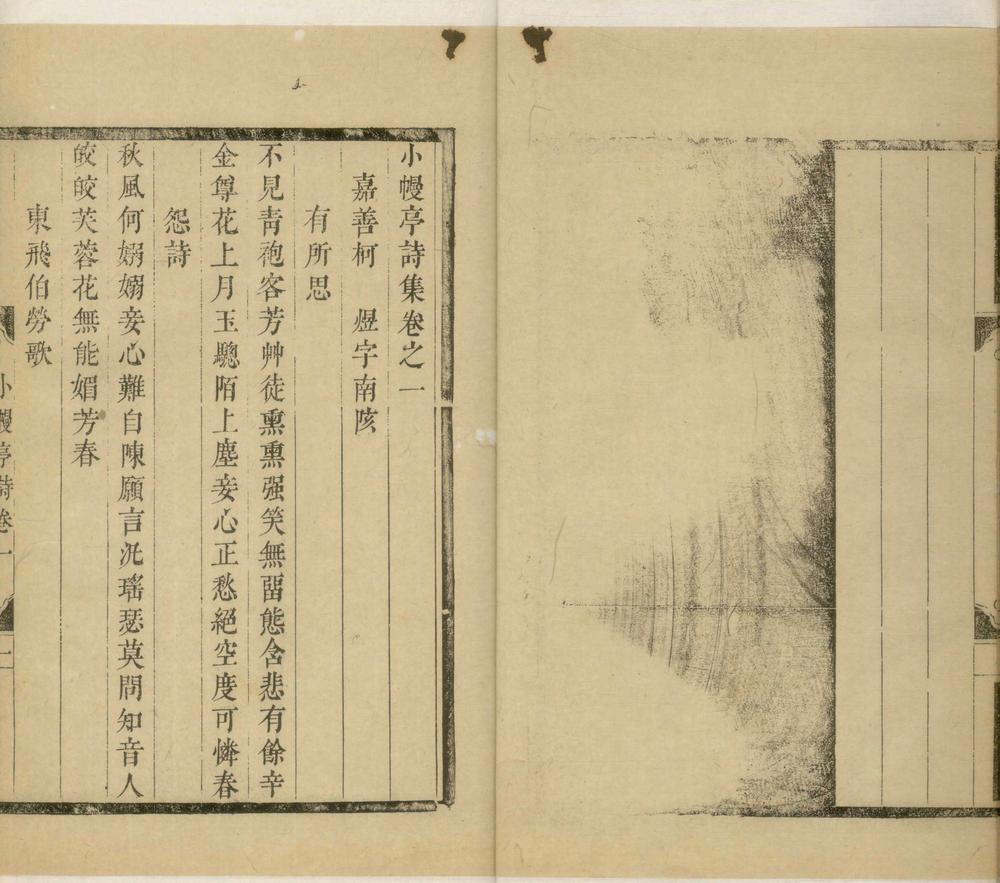 小幔亭詩集卷之一
嘉善柯　煜字南陔
有所思
不見青袍客芳艸徒熏熏强笑無畱態含悲有餘辛
金尊花上月玉驄陌上塵妾心正愁絕空度可憐春
怨詩
秋風何嫋嫋妾心難自陳願言洗瑤瑟莫問知音人
皎皎芙蓉花無能媚芳春
東飛伯勞歌
小幔亭詩卷一
一